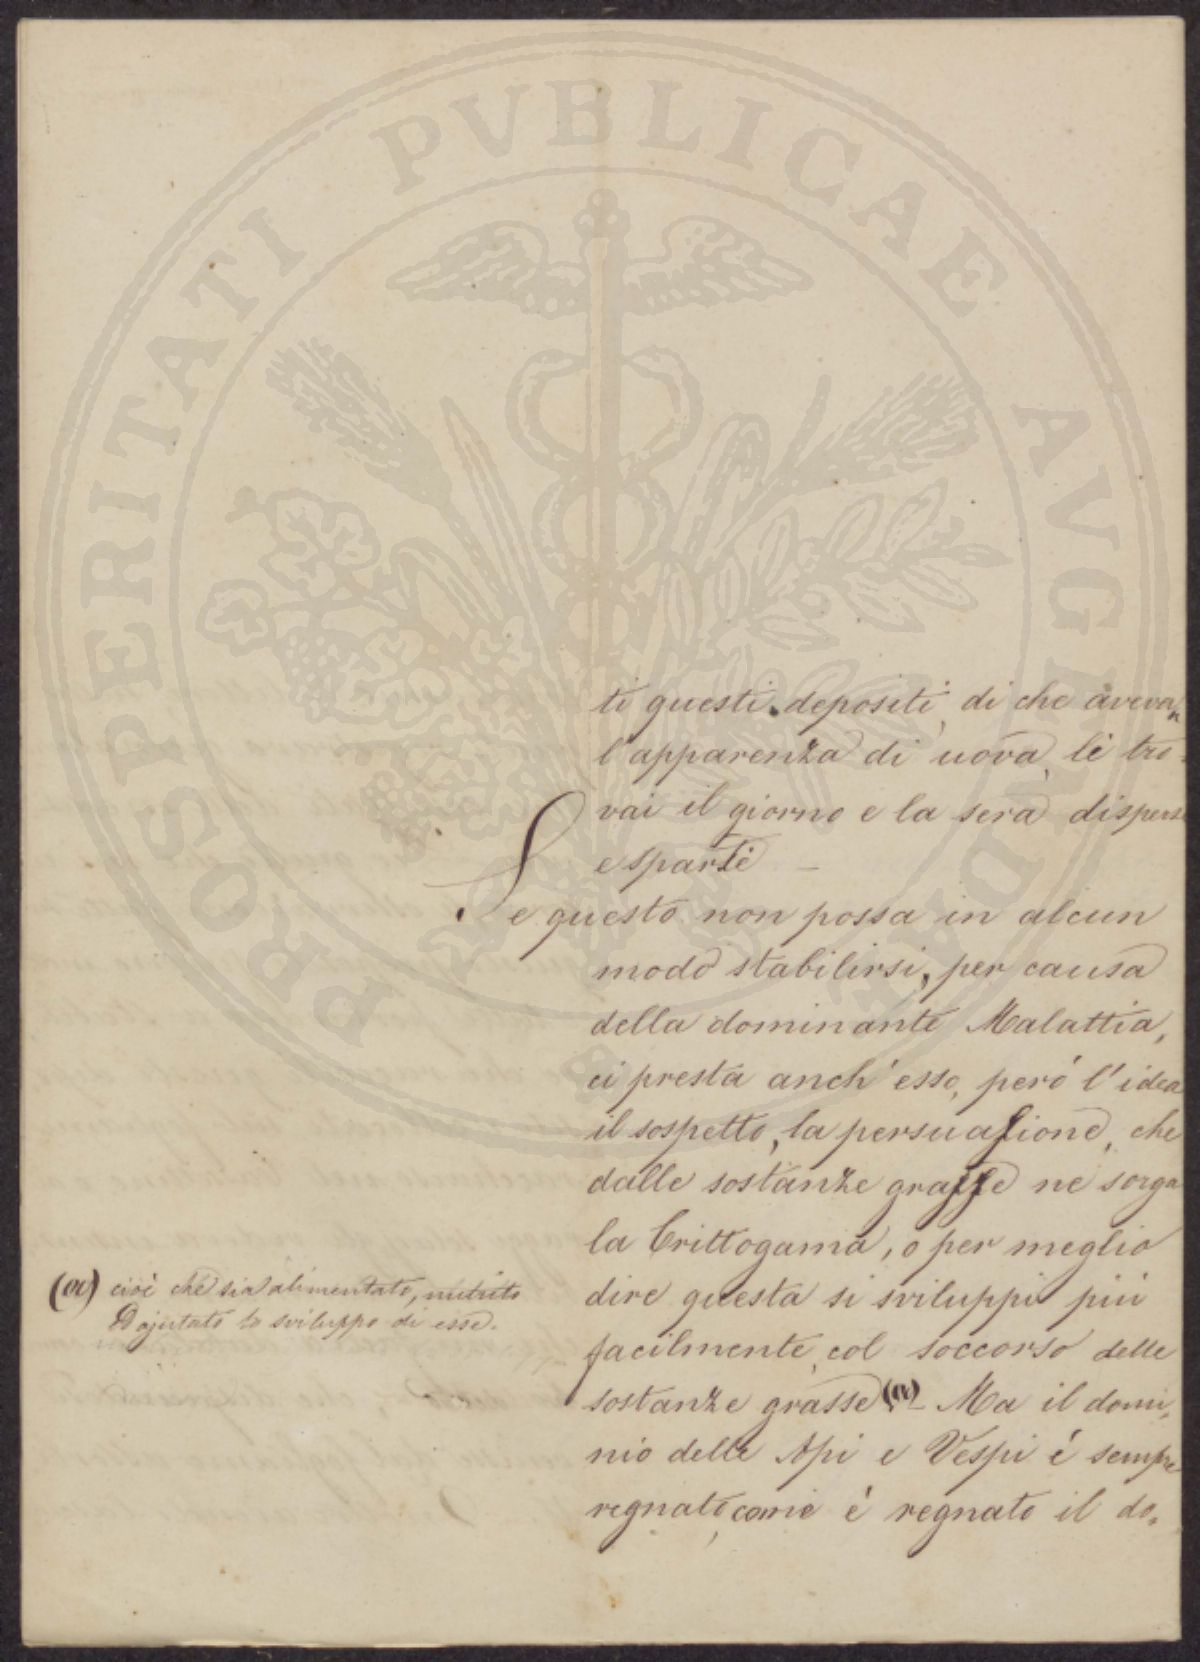 PROSPERITATI PVBLICAE AVGENDAE
ti questi depositi, di che aveva,
l'apparenza di uova, le tro-
vai il giorno e la sera disperse
e sparse —
Se questo non possa in alcun
modo stabilirsi, per causa
della dominante Malattia,
ci presta anch'esso, però l'idea
il sospetto, la persuasione, che
dalle sostanze grasse ne sorga
la Crittogama, o per meglio
dire questa si sviluppi più
facilmente, col soccorso delle
sostanze grasse (a) Ma il domi-
nio delle Api e Vespi è sempre
regnato, come è regnato il do-
(a) cioè che sia alimentato, nutrito
ed ajutato lo sviluppo di esse.